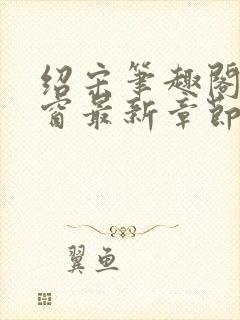 绍宋笔趣阁
窗最新章节
翼鱼